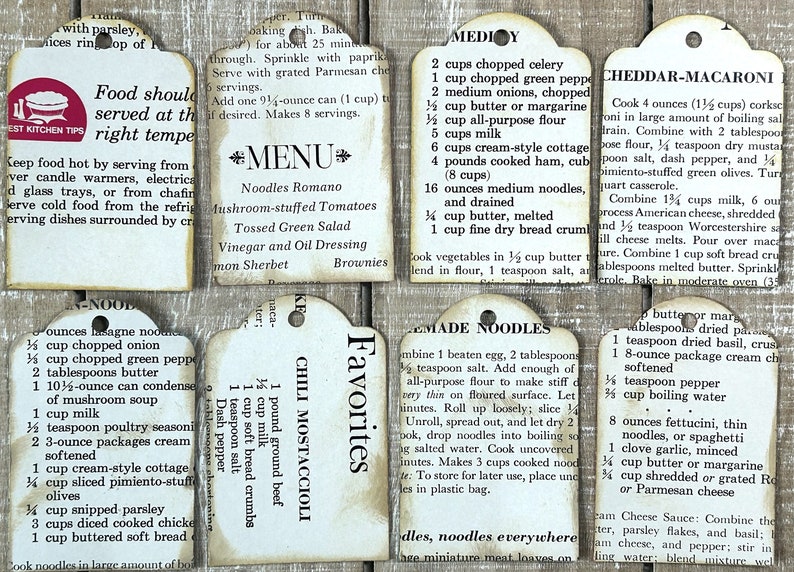 with parsley,
ices ring
top of
Food should
served at th
right tempe
EST KITCHEN TIPS
Keep food hot by serving from
ver candle warmers, electrica
d glass trays, or from chafin
erve cold food from the refrig
erving dishes surrounded by cra
Turn
baking dish. Bake
for about 25 minut
through. Sprinkle with paprika
Serve with grated Parmesan che
6 servings.
Add one 9¼-ounce can (1 cup) tu
if desired. Makes 8 servings.
MENU
Noodles Romano
Mushroom-stuffed Tomatoes
Tossed Green Salad
Vinegar and Oil Dressing
mon Sherbet Brownies
Beverage
MEDLEY
2 cups chopped celery
1 cup chopped green peppe
2 medium onions, chopped
½ cup butter or margarine
½ cup all-purpose flour
5 cups milk
6 cups cream-style cottage
4 pounds cooked ham, cub
(8 cups)
16 ounces medium noodles,
and drained
¼ cup butter, melted
1 cup fine dry bread crumb
Cook vegetables in ½ cup butter
lend in flour, 1 teaspoon salt, an
CHEDDAR-MACARONI
Cook 4 ounces (1½ cups) corksc
roni in large amount of boiling sal
drain. Combine with 2 tablespoo
pose flour, ¼ teaspoon dry mustar
poon salt, dash pepper, and ¼
pimiento-stuffed green olives. Turn
quart casserole.
Combine 1¾ cups milk, 6 oun
process American cheese, shredded (
and ½ teaspoon Worcestershire sa
till cheese melts. Pour over maca
ure. Combine 1 cup soft bread cru
tablespoons melted butter. Sprinkl
erole. Bake in moderate oven (35
N-NOOD
8 ounces lasagne noodle
⅓ cup chopped onion
⅓ cup chopped green peppe
2 tablespoons butter
1 10½-ounce can condense
of mushroom soup
1 cup milk
½ teaspoon poultry seasoni
2 3-ounce packages cream
softened
1 cup cream-style cottage
¼ cup sliced pimiento-stuff
olives
¼ cup snipped parsley
3 cups diced cooked chicke
1 cup buttered soft bread
Cook noodles in large amount of boi
Favorites
CHILI MOSTACCIOLI
1 pound ground beef
½ cup milk
1 cup soft bread crumbs
1 teaspoon salt
Dash pepper
2 tablespoons shortening
EMADE NOODLES
ombine 1 beaten egg, 2 tablespoons
½ teaspoon salt. Add enough of
all-purpose flour to make stiff d
very thin on floured surface. Let
minutes. Roll up loosely; slice ¼
Unroll, spread out, and let dry 2
ook, drop noodles into boiling so
ng salted water. Cook uncovered
minutes. Makes 3 cups cooked nood
te: To store for later use, place unc
les in plastic bag.
dles, noodles everywhere
age miniature meat loaves on
cup butter or marg
tablespoons dried parsl
1 teaspoon dried basil, crus
1 8-ounce package cream ch
softened
⅛ teaspoon pepper
⅔ cup boiling water
. . .
8 ounces fettucini, thin
noodles, or spaghetti
1 clove garlic, minced
¼ cup butter or margarine
¾ cup shredded or grated Ro
or Parmesan cheese
eam Cheese Sauce: Combine the
tter, parsley flakes, and basil; b
am cheese, and pepper; stir in
iling water; blend mixture wel